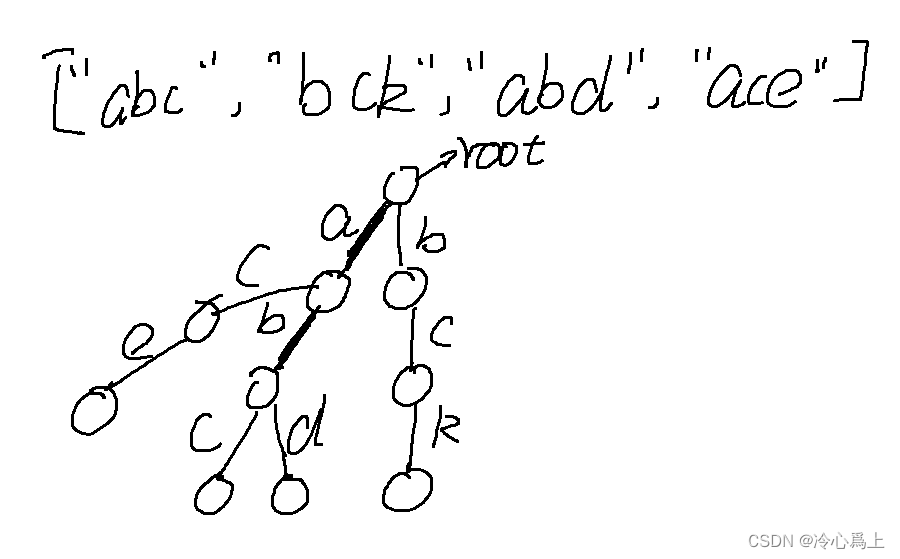 ["abc", "bck", "abd", "ace"]
root
a
b
c
b
c
e
c
d
k
CSDN @冷心爲上